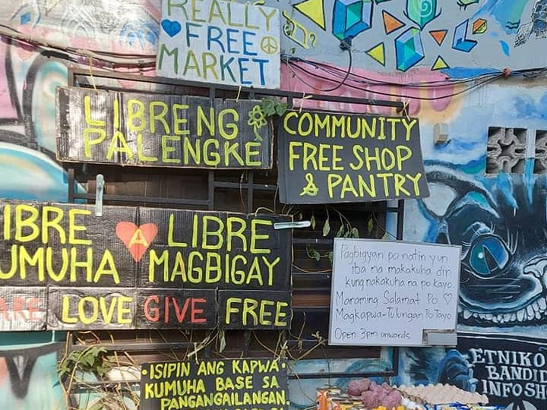 REALLY
FREE
MARKET
LIBRENG
PALENGKE
COMMUNITY
FREE SHOP
& PANTRY
IBRE A LIBRE
UMUHA MAGBIGAY
LOVE GIVE FREE
Pagbigyan po natin yun
iba na makakuha din
kung nakakuha na po kayo
Maraming Salamat Po ♡
Magkapwa-Tulungan Po Tayo
Open 3pm onwards
• ISIPIN ANG KAPWA •
KUMUHA BASE SA
PANGANGAILANGAN.
ETNIKO
BANDID
INFOSH